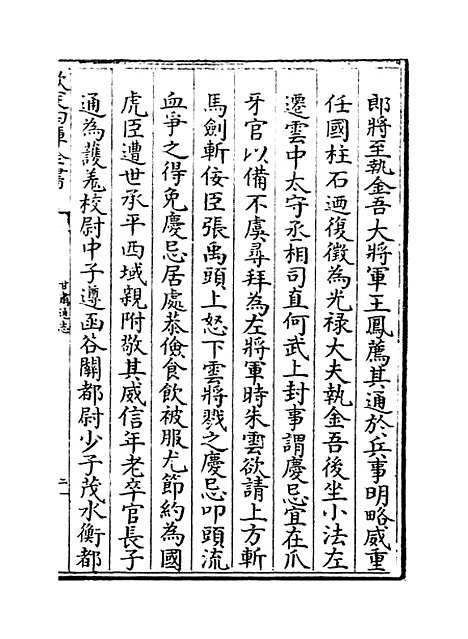 郎將至執金吾大將軍王鳳薦其通於兵事明略威重
任國柱石迺復徵為光禄大夫執金吾後坐小法左
遷雲中太守丞相司直何武上封事謂慶忌宜在爪
牙官以備不虞尋拜為左將軍時朱雲欲請上方斬
馬劍斬佞臣張禹頭上怒下雲將戮之慶忌叩頭流
血爭之得免慶忌居處恭儉食飲被服尤節約為國
虎臣遭世承平西域親附敬其威信年老卒官長子
通為護羌校尉中子遵函谷關都尉少子茂水衡都
欽定四庫全書
甘肅通志